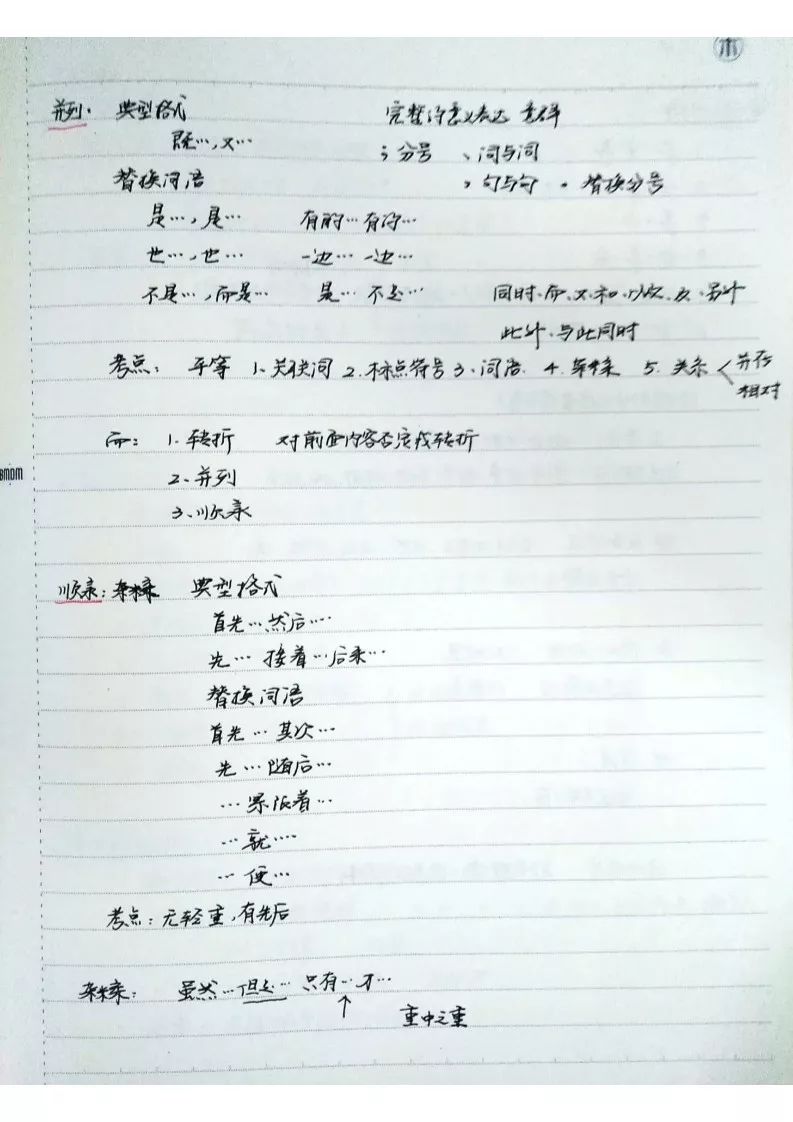 并列. 典型格式 完整的意义表达
既…,又… ;分号 、词与词
替换词语 ,句与句 。替换分号
是…,是… 有的…有的…
也…,也… 一边…一边…
不是…,而是… 是…不是… 同时、而、又、和、以及、及、另外
此外、与此同时
考点: 平等 1、关联词 2、标点符号 3、词语 4、杂糅 5、关系 并存
相对
而: 1、转折 对前面内容否定或转折
2、并列
3、顺承
顺承: 典型格式
首先…然后…
先…接着…后来…
替换词语
首先…其次…
先…随后…
…紧接着…
…就…
…便…
考点:无轻重,有先后
杂糅: 虽然…但是…只有…才…
↑
重中之重